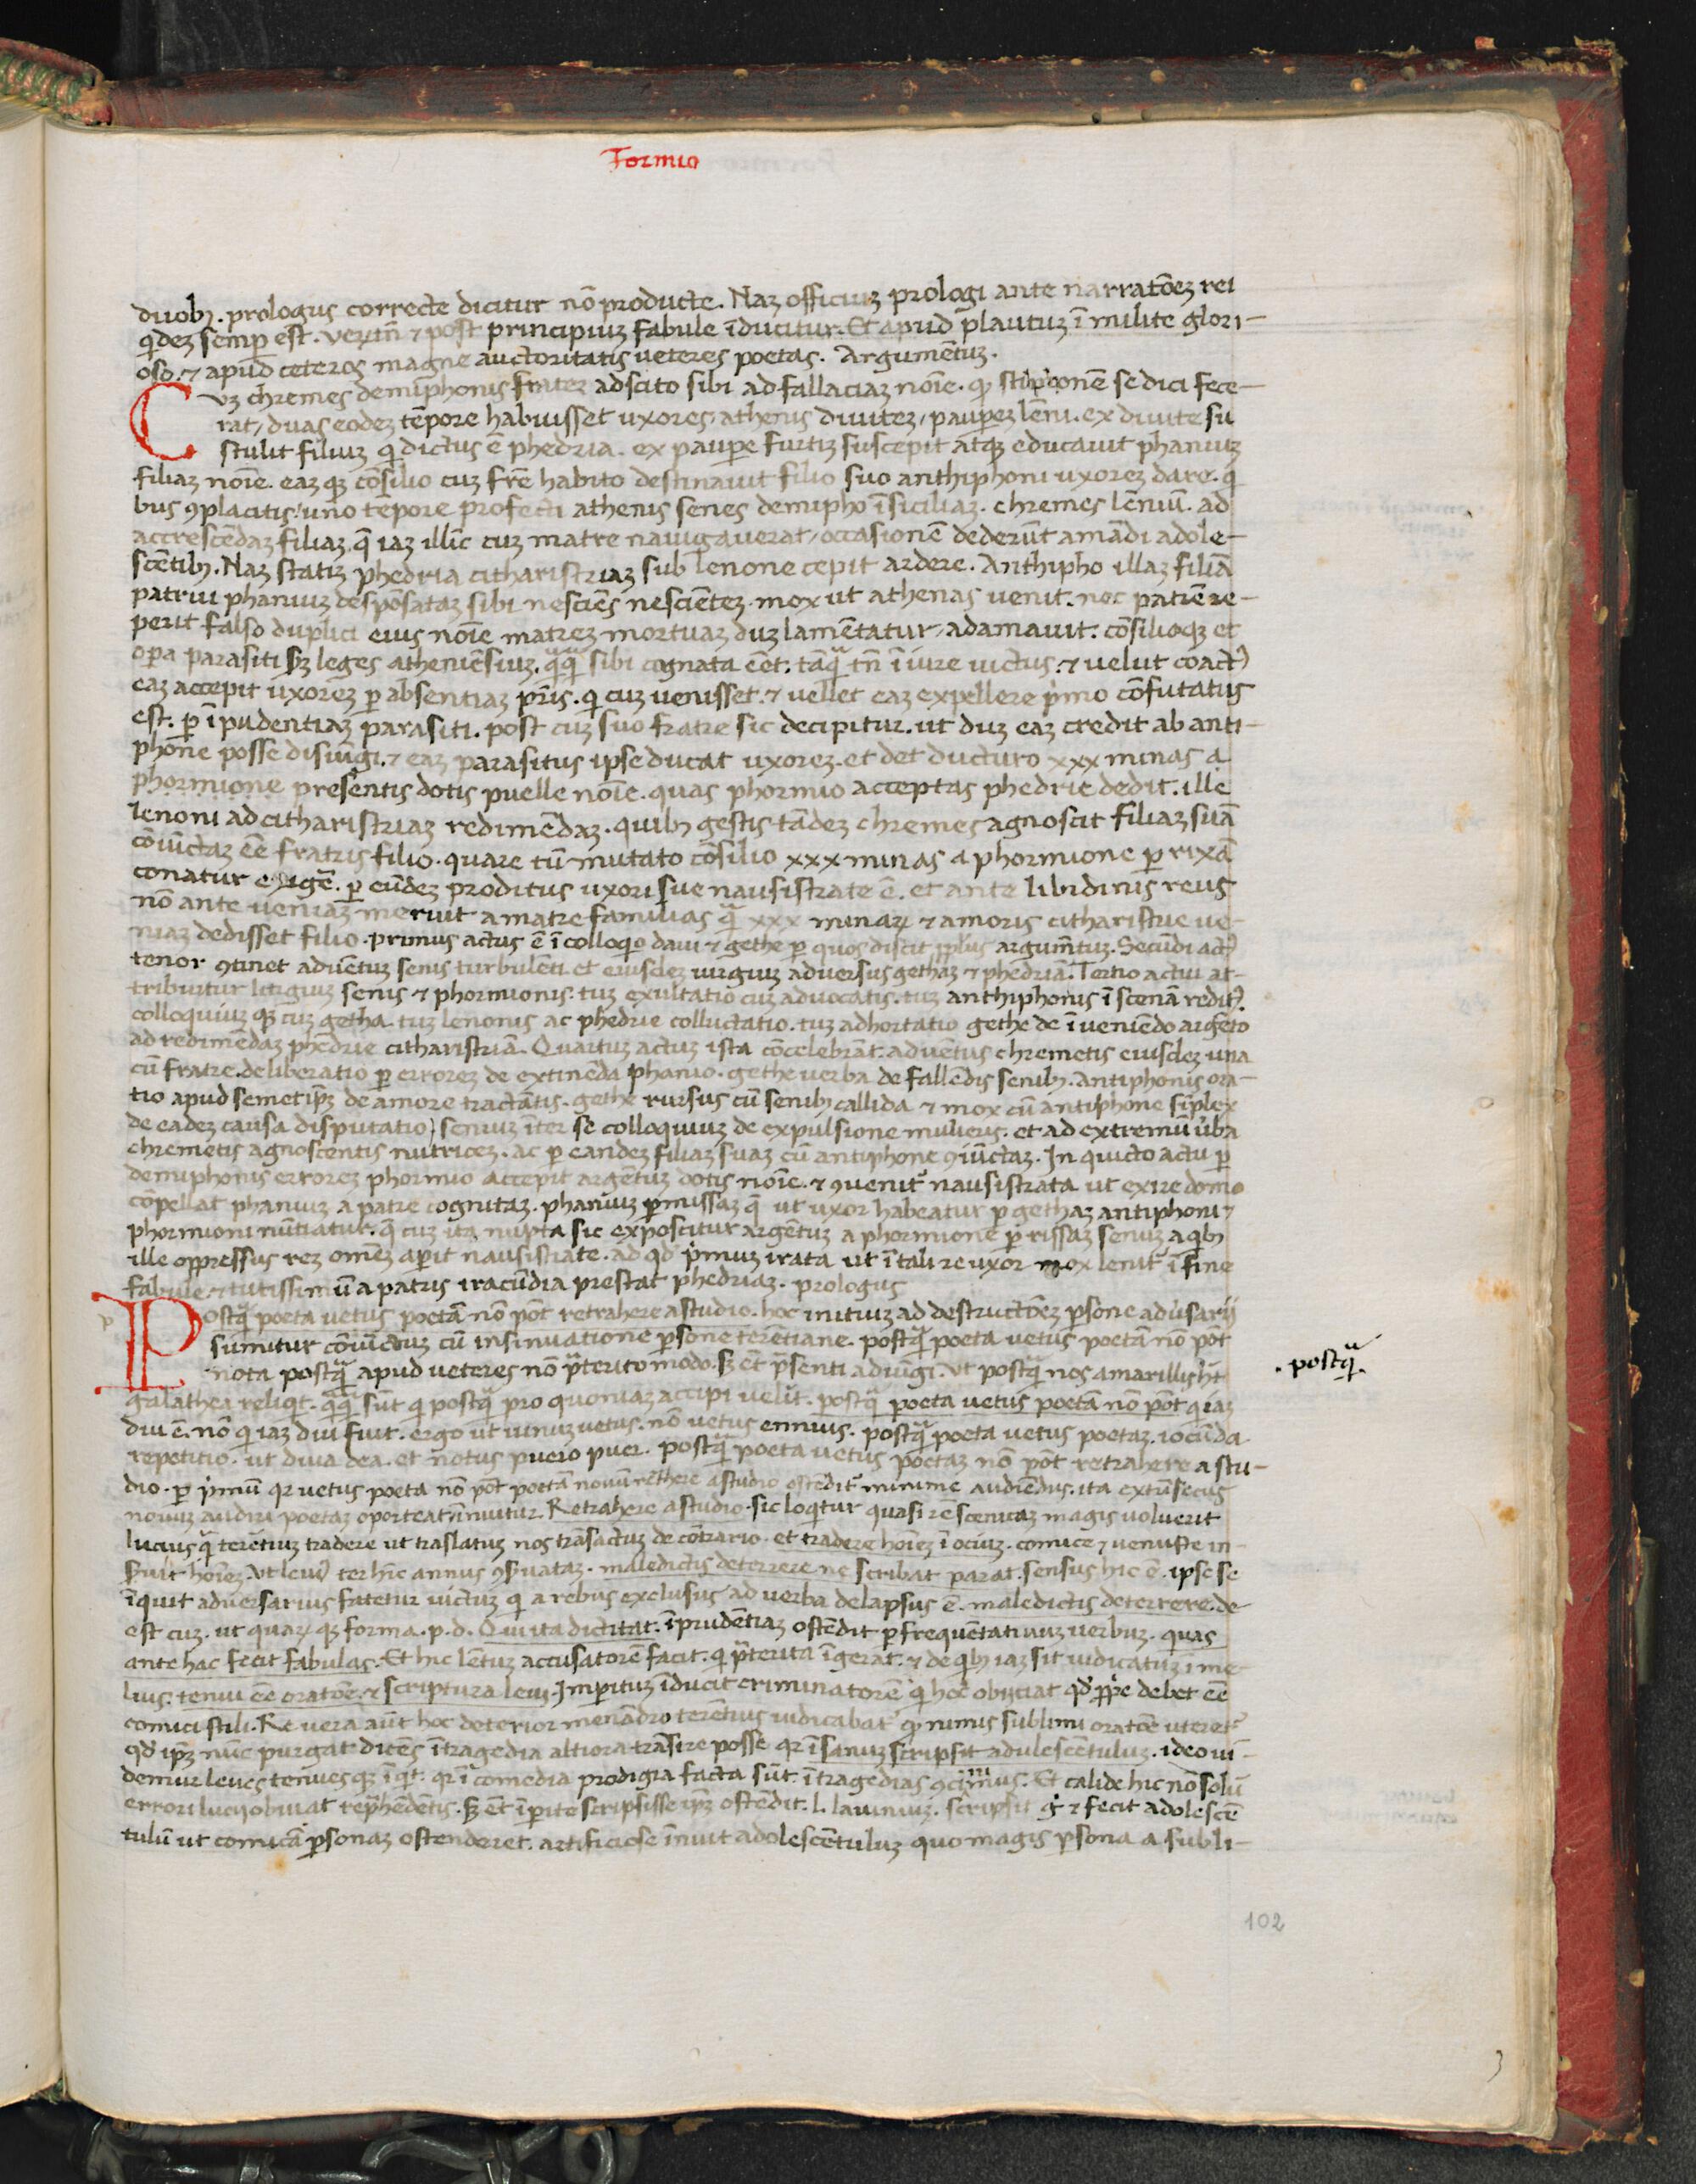 Formio
duobꝫ. prologus correcte dicitur nō producte. Naꝫ officiuꝫ prologi ante narratōeꝫ rei
qdeꝫ semp est. verūtn̄ ⁊ post principiuꝫ fabule īducitur. Et apud plautuꝫ ī milite glori-
oso. ⁊ apud ceteros magne auctoritatis ueteres poetas. Argumentuꝫ.
Cuꝫ chremes demiphonis frater adscito sibi ad fallaciaꝫ noīe. qꝫ stiponē se dici fece-
rat, duas eodeꝫ tēpore habuisset uxores, athenis diuiteꝫ, paupeꝫ lēni. ex diuite su
stulit filiuꝫ qi dictus ē phedria. ex paupe furtiꝫ suscepit atqꝫ educauit phaniuꝫ
filiaꝫ noīe. eaꝫ qꝫ cōsilio cuꝫ frē habito destinauit filio suo anthiphoni uxoreꝫ dare. qi
bus ꝯplacitis, uno tēpore profecti athenis senes demipho ī siciliaꝫ. chremes lēniū. ad
accrescēdaꝫ filiaꝫ, q̄ iaꝫ illīc cuꝫ matre nauigauerat, occasionē dederūt amādi adole-
scētibꝫ. Naꝫ statiꝫ phedria citharistriaꝫ sub lenone cepit ardere. Anthipho illaꝫ filiā
patrui phaniuꝫ despōsataꝫ sibi nesciēs nescienteꝫ. mox ut athenas uenit. nec patrē re-
perit falso duplici eius noīe matreꝫ mortuaꝫ duꝫ lamētatur, adamauit. cōsilioqꝫ et
opa parasiti sꝫ leges atheniēsiuꝫ. qꝗ sibi cognata eēt. tāq̄ tn̄ ī iure uictus. ⁊ uelut coactꝰ
eaꝫ accepit uxoreꝫ ꝑ absentiaꝫ pr̄is. qi cuꝫ uenisset. ⁊ uellet eaꝫ expellere pimo cōfutatus
est. ꝑ īpudentiaꝫ parasiti. post cuꝫ suo fratre sic decipitur. ut duꝫ eaꝫ credit ab anti-
phone posse disiūgi. ⁊ eaꝫ parasitus ipse ducat uxoreꝫ. et det ducturo xxx minas a
phormione presentis dotis puelle noīe. quas phormio acceptas phedrie dedit. ille
lenoni ad citharistriaꝫ redimēdaꝫ. quibꝫ gestis tādeꝫ chremes agnoscit filiaꝫ suā
cōiūctaꝫ eē fratris filio. quare tū mutato cōsilio xxx minas a phormione ꝑ rixā
conatur exigē. ꝑ eūdeꝫ proditus uxori sue nausistrate ē. et ante libidinis reus
nō ante ueniaꝫ meruit a matre familias q̄ xxx minaꝝ ⁊ amoris citharistrie ue-
niaꝫ dedisset filio. primus actus ē ī colloqio daui ⁊ gethe ꝑ quos discit pplus argumētuꝫ. Secūdi actꝰ
tenor ꝯtinet aduētuꝫ senis turbulēti et eiusdeꝫ iurgiuꝫ aduersus gethaꝫ ⁊ phedriā. Tertio actui at-
tribuitur litigiuꝫ senis ⁊ phormionis. tuꝫ exultatio cuꝫ aduocatis. tuꝫ anthiphonis ī scenā reditꝰ.
colloquiuꝫ qꝫ cuꝫ getha. tuꝫ lenonis ac phedrie colluctatio. tuꝫ adhortatio gethe de īueniēdo argēto
ad redimēdaꝫ phedrie citharistriā. Quartuꝫ actuꝫ ista cōcelebrāt. aduētus chremetis eiusdeꝫ una
cū fratre. deliberatio ꝑ erroreꝫ de extinēda phanio. gethe uerba de fallēdis senibꝫ. Antiphonis ora-
tio apud semetipꝫ de amore tractātis. gethe rursus cū senibꝫ callida ⁊ mox cū antiphone sīplex
de eadeꝫ causa disputatio, senuꝫ iter se colloquiuꝫ de expulsione mulieris. et ad extremū ūba
chremetis agnoscentis nutriceꝫ. ac ꝑ eandeꝫ filiaꝫ suaꝫ cū antiphone ꝯiūctaꝫ. In quicto actu ꝑ
demiphonis erroreꝫ phormio accepit argētuꝫ dotis noīe. ⁊ ꝯuenit nausistrata ut exire domo
cōpellat phaniuꝫ a patre cognitaꝫ. phaniuꝫ ꝑmissaꝫ q̄ ut uxor habeatur ꝑ gethaꝫ antiphoni ⁊
phormioni nūtiatur. q̄ cuꝫ ita nupta sic exposcitur argētuꝫ a phormione ꝑ rissaꝫ senuꝫ a qibꝫ
ille oppressus reꝫ omēꝫ aperit nausistrate. ad qd pimuꝫ irata ut ī tali re uxor mox lenit ī fine
fabule ⁊ tutissimū a patris iracūdia prestat phedriaꝫ. prologus
Postq̄ poeta uetus poetā nō pōt retrahere a studio. hoc initiuꝫ ad destructōeꝫ psone adūsarij
sumitur cōiūctuꝫ cū insinuatione psone terētiane. postq̄ poeta uetus poetā nō pōt
nota postq̄ apud ueteres nō pterito modo. sꝫ ēt psenti adiūgi. ut postq̄ nos amarillis hēt
galathea reliqit. qꝗ sūt qi postq̄ pro quoniaꝫ accipi uelīt. postq̄ poeta uetus poetā nō pōt qi iaꝫ
diu ē. nō qi iaꝫ diu fuit. ergo ut uinuꝫ uetus. nō uetus ennius. postq̄ poeta uetus poetaꝫ. iocūda
repetitio. ut diua dea. et notus puero puer. postq̄ poeta uetus poetaꝫ nō pōt retrahere a stu-
dio. ꝑ pimū qꝛ uetus poeta nō pōt poetā nouū rēthere a studio ostēdit minime audiēdus. ita extrīsecus
nouuꝫ audiri poetaꝫ oporteat īnuitur. Retrahere a studio. sic loqitur quasi rē scenicaꝫ magis uoluerit
lucius q̄ terētiuꝫ tradere ut traslatuꝫ nos trāsactuꝫ de cōtrario. et tradere hoīeꝫ ī ociuꝫ. comice ⁊ uenuste in-
hoīeꝫ. ter hīc annus ꝯseruataꝫ. maledictis deterrere ne scribat parat. sensus hic ē. ipse se
īquit aduersarius fatetur uictuꝫ qi a rebus exclusus ad uerba delapsus ē. maledictis deterrere. de
est cuꝫ. ut quaꝝ qꝫ forma. p. d. Qui ita dictitat. īprudētiaꝫ ostēdit ꝑ frequētatiuuꝫ uerbuꝫ. quas
ante hac fecit fabulas. Et hic lētuꝫ accusatorē facit. qi pterita īgerat. ⁊ de qibꝫ iaꝫ sit iudicatuꝫ ī me
lius. tenui eē oratōe ⁊ scriptura leui. Imperituꝫ īducit criminatorē qi hoc obijciat qd ppe debet eē
comici stili. Re uera aūt hoc deterior menādro terētius iudicabat qꝫ nimis sublimi oratōe uteretꝰ
qd ipꝫ nūc purgat dicēs ī tragedia altiora trāsire posse qꝛ īsanuꝫ scripsit adulescētuluꝫ. ideo ui-
demur leues tenues qꝫ īqit. qꝛ ī comedia prodigia facta sūt. ī tragedias ꝯcīimus. Et calide hic nō solū
errori lucij obuiat rephēdētis. sꝫ ēt īperite scripsisse ipꝫ ostēdit. l. lauiniuꝫ. scripsit g ⁊ fecit adolescē
tulū ut comicā psonaꝫ ostenderet. artificiose īnuit adolescētuluꝫ quo magis psona a subli-
. postq̄.
102